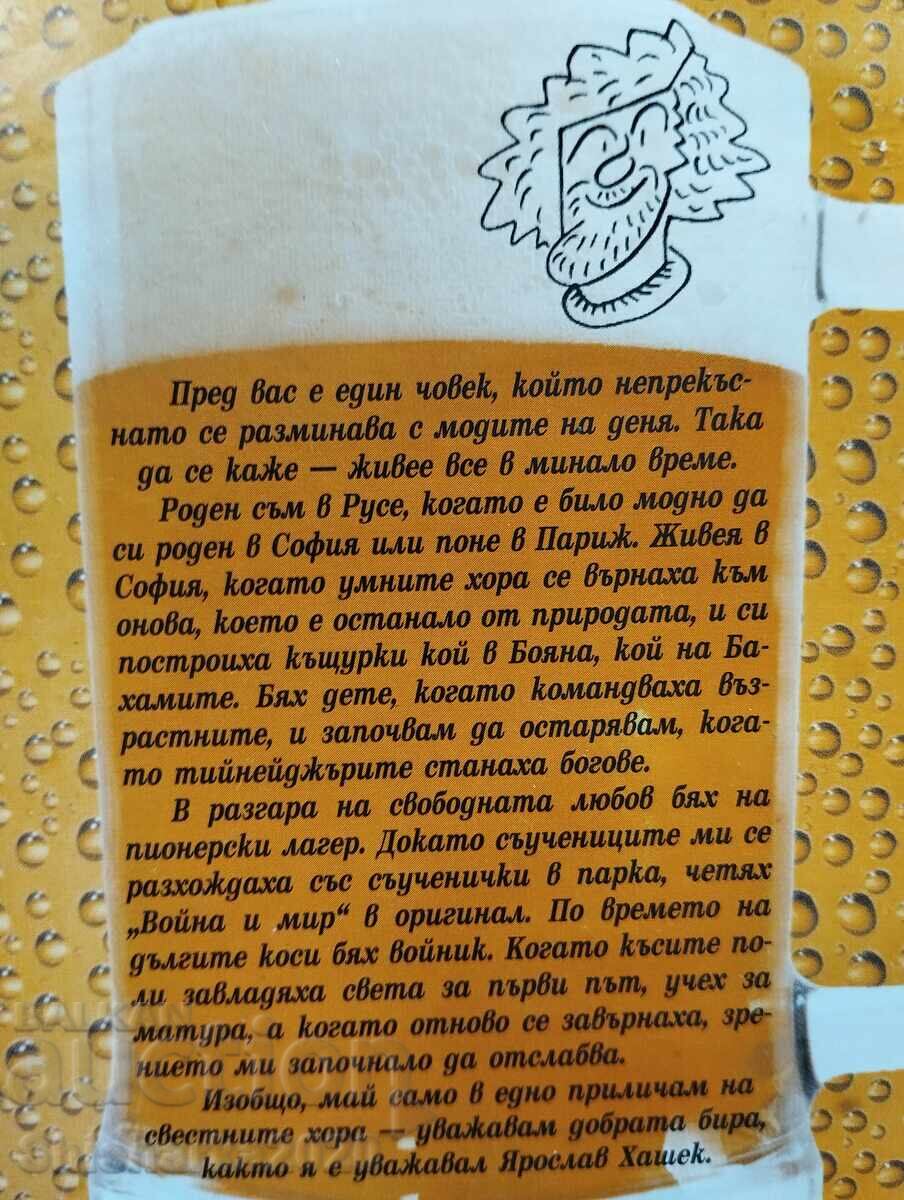 Пред вас е един човек, който непрекъс-
нато се разминава с модите на деня. Така
да се каже — живее все в минало време.
Роден съм в Русе, когато е било модно да
си роден в София или поне в Париж. Живея в
София, когато умните хора се върнаха към
онова, което е останало от природата, и си
построиха къщурки кой в Бояна, кой на Ба-
хамите. Бях дете, когато командваха въз-
растните, и започвам да остарявам, кога-
то тийнейджърите станаха богове.
В разгара на свободната любов бях на
пионерски лагер. Докато съучениците ми се
разхождаха със съученички в парка, четях
„Война и мир“ в оригинал. По времето на
дългите коси бях войник. Когато късите по-
ли завладяха света за първи път, учех за
матура, а когато отново се завърнаха, зре-
нието ми започнало да отслабва.
Изобщо, май само в едно приличам на
свестните хора — уважавам добрата бира,
както я е уважавал Ярослав Хашек.
BALKAN
auction